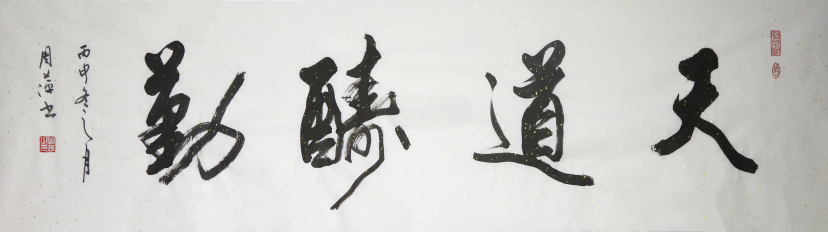 天道酬勤
丙申冬之月
周萍书